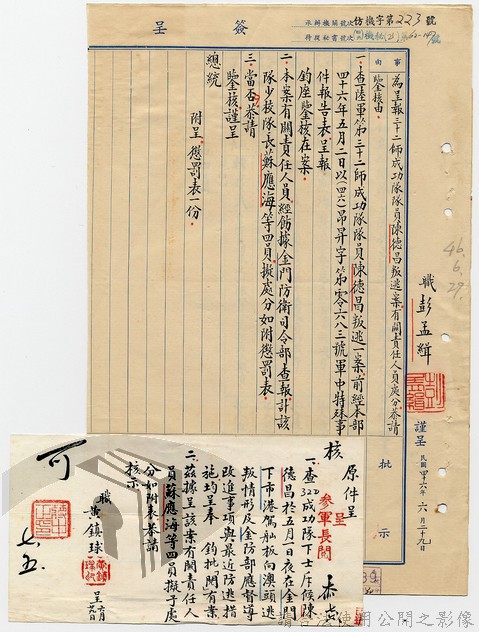 簽呈
承辦機關號次 仿機字第223號
事由
為呈報三十二師成功隊隊員陳德昌叛逃案有關責任人員處分恭請
鑒核由
一、查陸軍第三十二師成功隊隊員陳德昌叛逃一案前經本部
四十六年五月二日以(四六)昂昇字第零六八三號軍中特殊事
件報告表呈報
鈞座鑒核在案
二、本案有關責任人員經飭據金門防衛司令部查報計該
隊少校隊長蘇應海等四員擬處分如附懲罰表
三、當否恭請
鑒核謹呈
總統
附呈懲罰表一份
職彭孟緝
謹呈
民國四十六年六月二十九日
批示
46.
6.
29.
核
原件呈
呈
參軍長閱
一、查32D成功隊下士斥候陳
德昌於五月一日夜在金門
下市港駕舢板向澳頭逃
叛情形及金防部應督導
改進事項與最近防逃措
施均呈奉 鈞批閱有案
二、茲據呈該案有關責任人
員蘇應海等四員擬予處
分如附表恭請
核示
職黃鎮球
呈
可
七、五